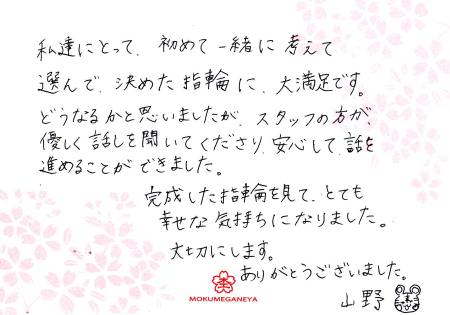 私達にとって、初めて一緒に考えて
選んで、決めた指輪に、大満足です。
どうなるかと思いましたが、スタッフの方が、
優しく話しを聞いてくださり、安心して、話を
進めることができました。
完成した指輪を見て、とても
幸せな気持ちになりました。
大切にします。
ありがとうございました。
山野
MOKUMEGANEYA